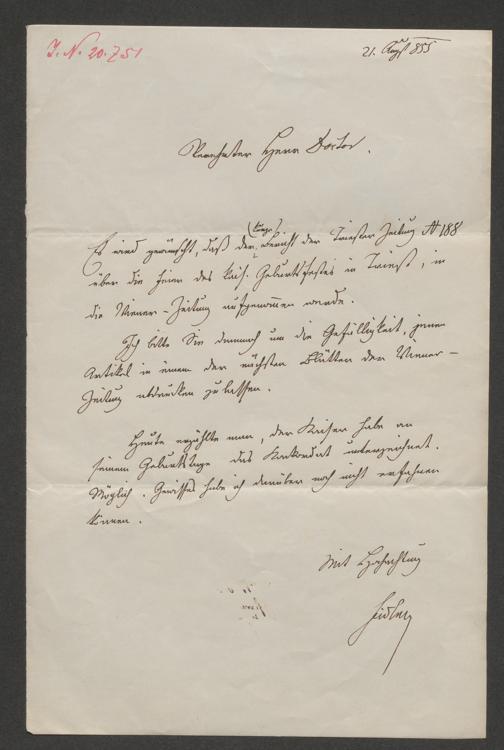 I. N. 20.751
21. Aug. 855
Verehrter Herr Doctor.
(lange)
Es wird gewünscht, daß der Bericht der Triester Zeitung N 188
über die Feier des kais. Geburtsfestes in Triest, in
die Wiener-Zeitung aufgenommen werde.
Ich bitte Sie demnach um die Gefälligkeit, jenen
Artikel in einem der nächsten Blätter der Wiener-
Zeitung abdrucken zu lassen.
Heute erzählte man, der Kaiser habe an
seinem Geburtstage das Konkordat unterzeichnet.
Möglich. Gewisses habe ich darüber noch nicht erfahren
können.
Mit Hochachtung